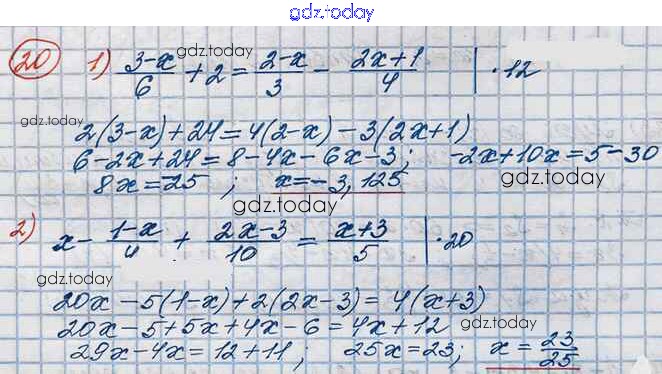 gdz.today
20 1) (3-x)/6 + 2 = (2-x)/3 - (2x+1)/4 | · 12
gdz.today
gdz.today
gdz.today
2(3-x)+24=4(2-x)-3(2x+1)
6-2x+24=8-4x-6x-3; -2x+10x=5-30
8x=-25; x=-3,125
gdz.today
gdz.today
2) x - (1-x)/4 + (2x-3)/10 = (x+3)/5 | · 20
gdz.today
gdz.today
20x-5(1-x)+2(2x-3)=4(x+3)
20x-5+5x+4x-6=4x+12
gdz.today
29x-4x=12+11; 25x=23; x=23/25